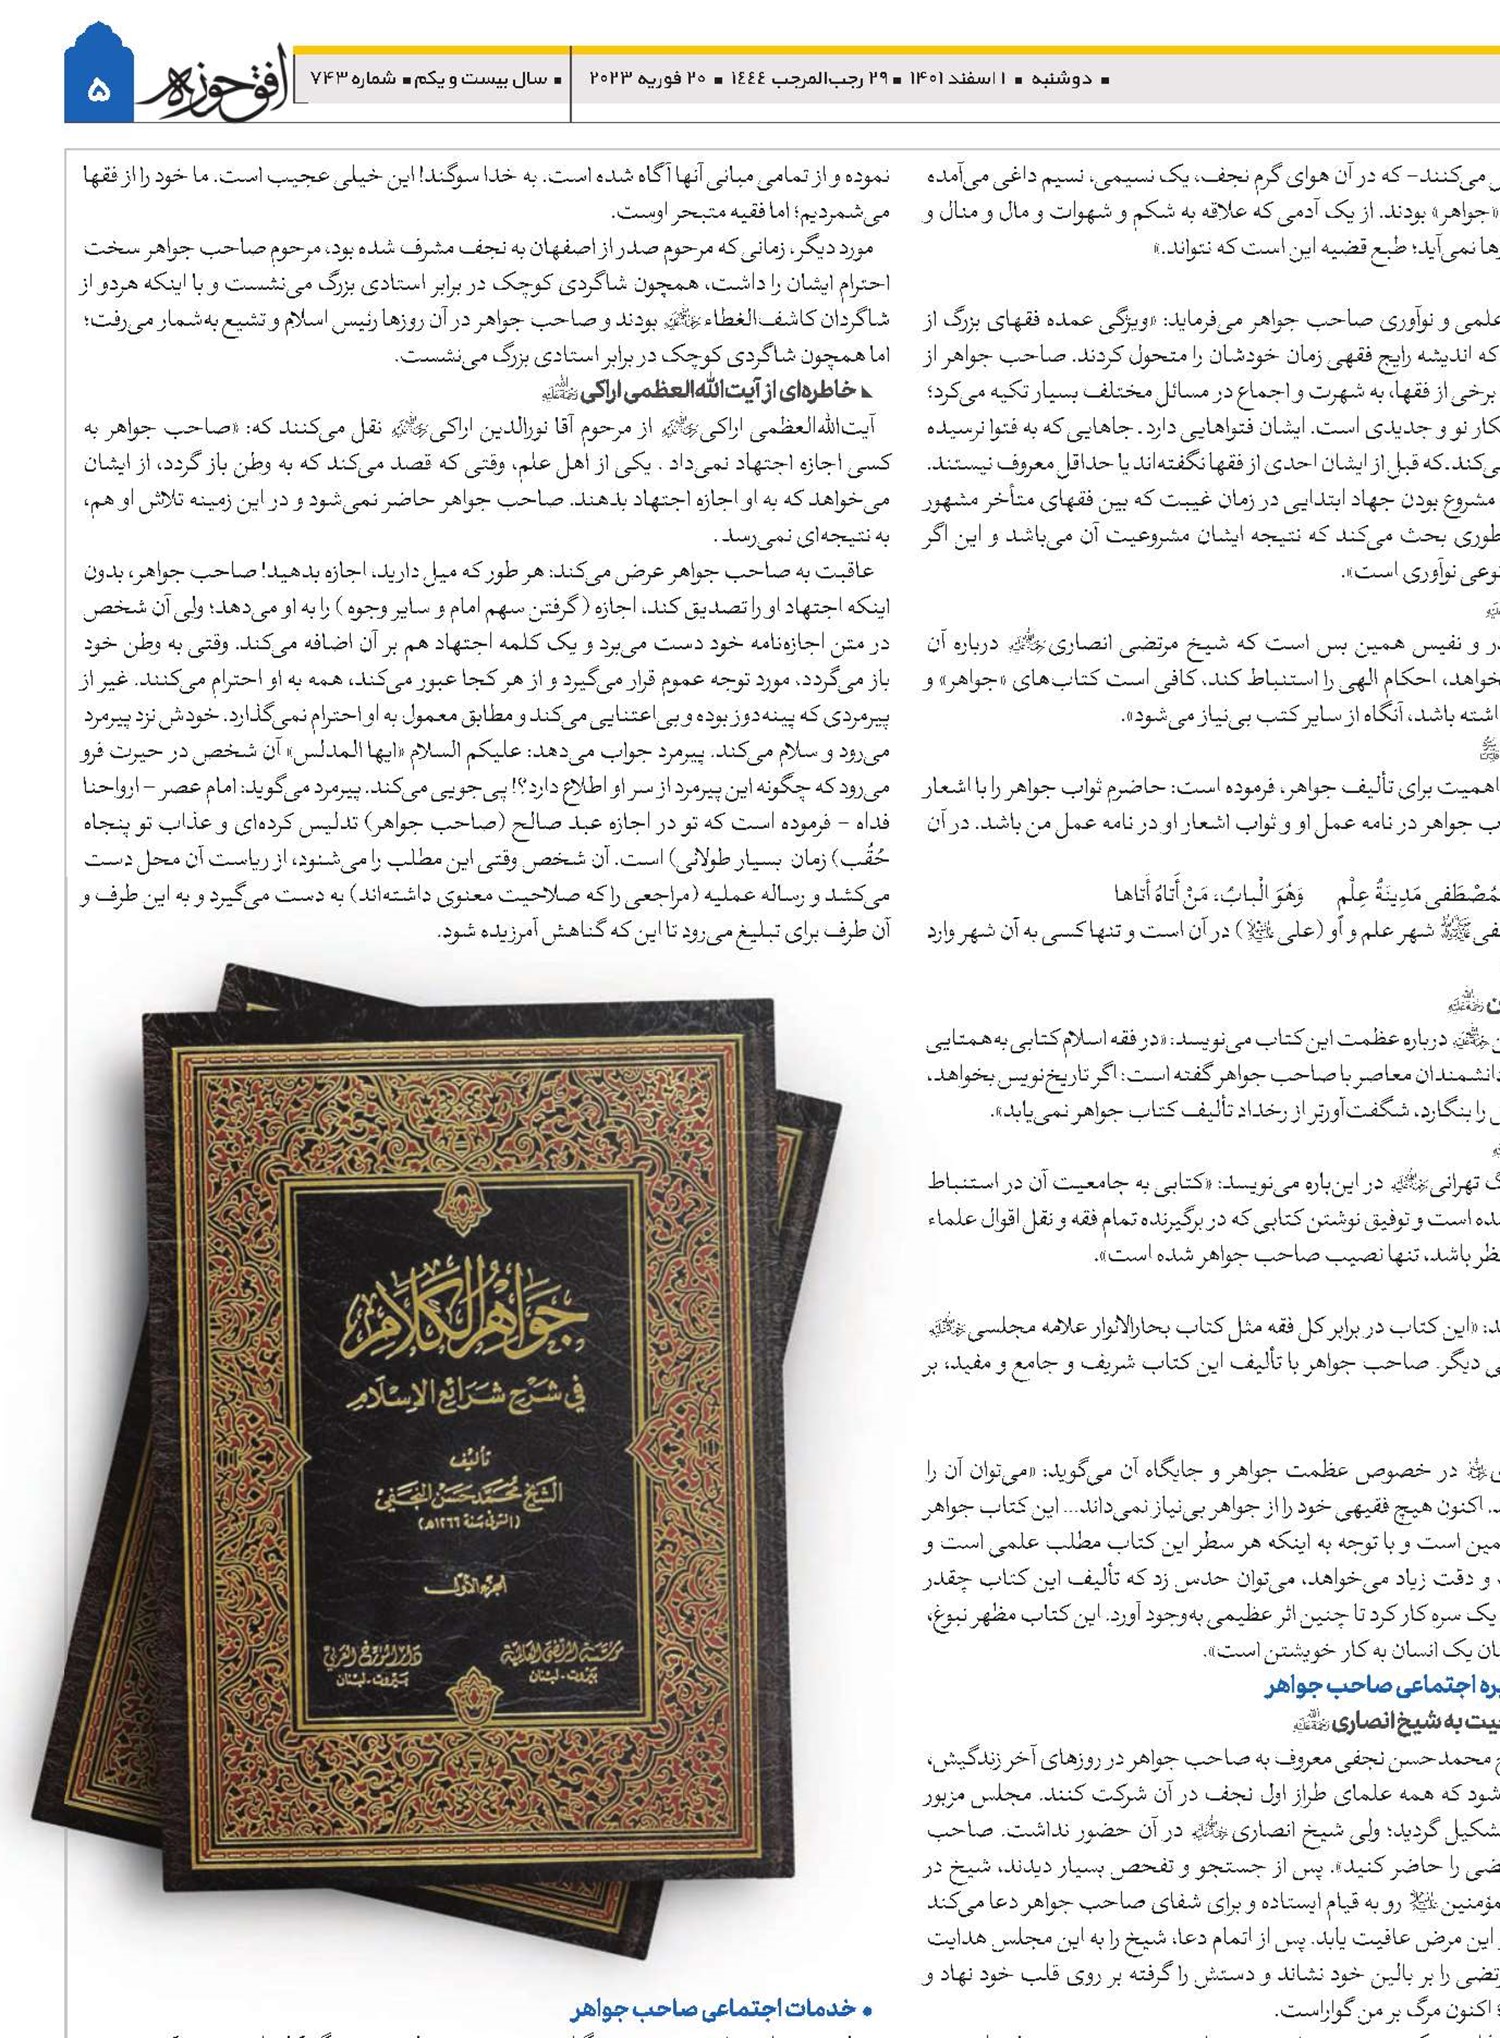 ▪ دوشنبه ▪ ۱ اسفند ۱۴۰۱ ▪ ۲۹ رجب‌المرجب ۱٤٤٤ ▪ ۲۰ فوریه ۲۰۲۳
▪ سال بیست و یکم ▪ شماره ۷۴۳
افق حوزه
۵
می‌کنند- که در آن هوای گرم نجف، یک نسیمی، نسیم داغی می‌آمده
«جواهر» بودند. از یک آدمی که علاقه به شکم و شهوات و مال و منال و
نمی‌آید؛ طبع قضیه این است که نتواند.»
علمی و نوآوری صاحب جواهر می‌فرماید: «ویژگی عمده فقهای بزرگ از
که اندیشه رایج فقهی زمان خودشان را متحول کردند. صاحب جواهر از
برخی از فقها، به شهرت و اجماع در مسائل مختلف بسیار تکیه می‌کرد؛
نو و جدیدی است. ایشان فتواهایی دارد. جاهایی که به فتوا نرسیده
می‌کند. که قبل از ایشان احدی از فقها نگفته‌اند یا حداقل معروف نیستند.
مشروع بودن جهاد ابتدایی در زمان غیبت که بین فقهای متأخر مشهور
طوری بحث می‌کند که نتیجه ایشان مشروعیت آن می‌باشد و این اگر
نوعی نوآوری است».
و نفیس همین بس است که شیخ مرتضی انصاری درباره آن
بخواهد، احکام الهی را استنباط کند، کافی است کتاب‌های «جواهر» و
داشته باشد، آنگاه از سایر کتب بی‌نیاز می‌شود».
اهمیت برای تألیف جواهر، فرموده است: حاضرم ثواب جواهر را با اشعار
جواهر در نامه عمل او و ثواب اشعار او در نامه عمل من باشد. در آن
مُصْطَفی مَدِینَةُ عِلْمٍ وَهُوَ الْبابُ، مَنْ أَتاهُ أَتاها
شهر علم و او (علی) در آن است و تنها کسی به آن شهر وارد
درباره عظمت این کتاب می‌نویسد: «در فقه اسلام کتابی به همتایی
دانشمندان معاصر با صاحب جواهر گفته است: اگر تاریخ‌نویس بخواهد،
را بنگارد، شگفت‌آورتر از رخداد تألیف کتاب جواهر نمی‌یابد».
تهرانی در این‌باره می‌نویسد: «کتابی به جامعیت آن در استنباط
است و توفیق نوشتن کتابی که در برگیرنده تمام فقه و نقل اقوال علماء
باشد، تنها نصیب صاحب جواهر شده است».
«این کتاب در برابر کل فقه مثل کتاب بحارالانوار علامه مجلسی
دیگر. صاحب جواهر با تألیف این کتاب شریف و جامع و مفید، بر
در خصوص عظمت جواهر و جایگاه آن می‌گوید: «می‌توان آن را
اکنون هیچ فقیهی خود را از جواهر بی‌نیاز نمی‌داند... این کتاب جواهر
است و با توجه به اینکه هر سطر این کتاب مطلب علمی است و
و دقت زیاد می‌خواهد، می‌توان حدس زد که تألیف این کتاب چقدر
یک سره کار کرد تا چنین اثر عظیمی به‌وجود آورد. این کتاب مظهر نبوغ،
یک انسان به کار خویشتن است».
اجتماعی صاحب جواهر
به شیخ انصاری
محمدحسن نجفی معروف به صاحب جواهر در روزهای آخر زندگیش،
شود که همه علمای طراز اول نجف در آن شرکت کنند. مجلس مزبور
تشکیل گردید؛ ولی شیخ انصاری در آن حضور نداشت. صاحب
را حاضر کنید». پس از جستجو و تفحص بسیار دیدند، شیخ در
رو به قیام ایستاده و برای شفای صاحب جواهر دعا می‌کند
این مرض عافیت یابد. پس از اتمام دعا، شیخ را به این مجلس هدایت
را بر بالین خود نشاند و دستش را گرفته بر روی قلب خود نهاد و
اکنون مرگ بر من گواراست.
نموده و از تمامی مبانی آنها آگاه شده است. به خدا سوگند! این خیلی عجیب است. ما خود را از فقها
می‌شمردیم؛ اما فقیه متبحر اوست.
مورد دیگر، زمانی که مرحوم صدر از اصفهان به نجف مشرف شده بود، مرحوم صاحب جواهر سخت
احترام ایشان را داشت، همچون شاگردی کوچک در برابر استادی بزرگ می‌نشست و با اینکه هردو از
شاگردان کاشف‌الغطاء بودند و صاحب جواهر در آن روزها رئیس اسلام و تشیع به‌شمار می‌رفت؛
اما همچون شاگردی کوچک در برابر استادی بزرگ می‌نشست.
خاطره‌ای از آیت‌الله‌العظمی اراکی
آیت‌الله‌العظمی اراکی از مرحوم آقا نورالدین اراکی نقل می‌کنند که: «صاحب جواهر به
کسی اجازه اجتهاد نمی‌داد. یکی از اهل علم، وقتی که قصد می‌کند که به وطن باز گردد، از ایشان
می‌خواهد که به او اجازه اجتهاد بدهند. صاحب جواهر حاضر نمی‌شود و در این زمینه تلاش او هم،
به نتیجه‌ای نمی‌رسد.
عاقبت به صاحب جواهر عرض می‌کند: هر طور که میل دارید، اجازه بدهید! صاحب جواهر، بدون
اینکه اجتهاد او را تصدیق کند، اجازه (گرفتن سهم امام و سایر وجوه) را به او می‌دهد؛ ولی آن شخص
در متن اجازه‌نامه خود دست می‌برد و یک کلمه اجتهاد هم بر آن اضافه می‌کند. وقتی به وطن خود
باز می‌گردد، مورد توجه عموم قرار می‌گیرد و از هر کجا عبور می‌کند، همه به او احترام می‌کنند. غیر از
پیرمردی که پینه‌دوز بوده و بی‌اعتنایی می‌کند و مطابق معمول به او احترام نمی‌گذارد. خودش نزد پیرمرد
می‌رود و سلام می‌کند. پیرمرد جواب می‌دهد: علیکم السلام «ایها المدلس» آن شخص در حیرت فرو
می‌رود که چگونه این پیرمرد از سر او اطلاع دارد؟! پی‌جویی می‌کند. پیرمرد می‌گوید: امام عصر – ارواحنا
فداه – فرموده است که تو در اجازه عبد صالح (صاحب جواهر) تدلیس کرده‌ای و عذاب تو پنجاه
حُقُب) زمان بسیار طولانی) است. آن شخص وقتی این مطلب را می‌شنود، از ریاست آن محل دست
می‌کشد و رساله عملیه (مراجعی را که صلاحیت معنوی داشته‌اند) به دست می‌گیرد و به این طرف و
آن طرف برای تبلیغ می‌رود تا این که گناهش آمرزیده شود.
جَوَاهِرُ الْكَلَام
في شَرْحِ شَرَائِعِ الإسْلَام
تأليف
الشيخ محمد حسن النجفي
سنة ١٢٦٦هـ)
الجزء الأول
مؤسسة المرتضى العالمية
بيروت - لبنان
دار المؤرخ العربي
بيروت - لبنان
• خدمات اجتماعی صاحب جواهر